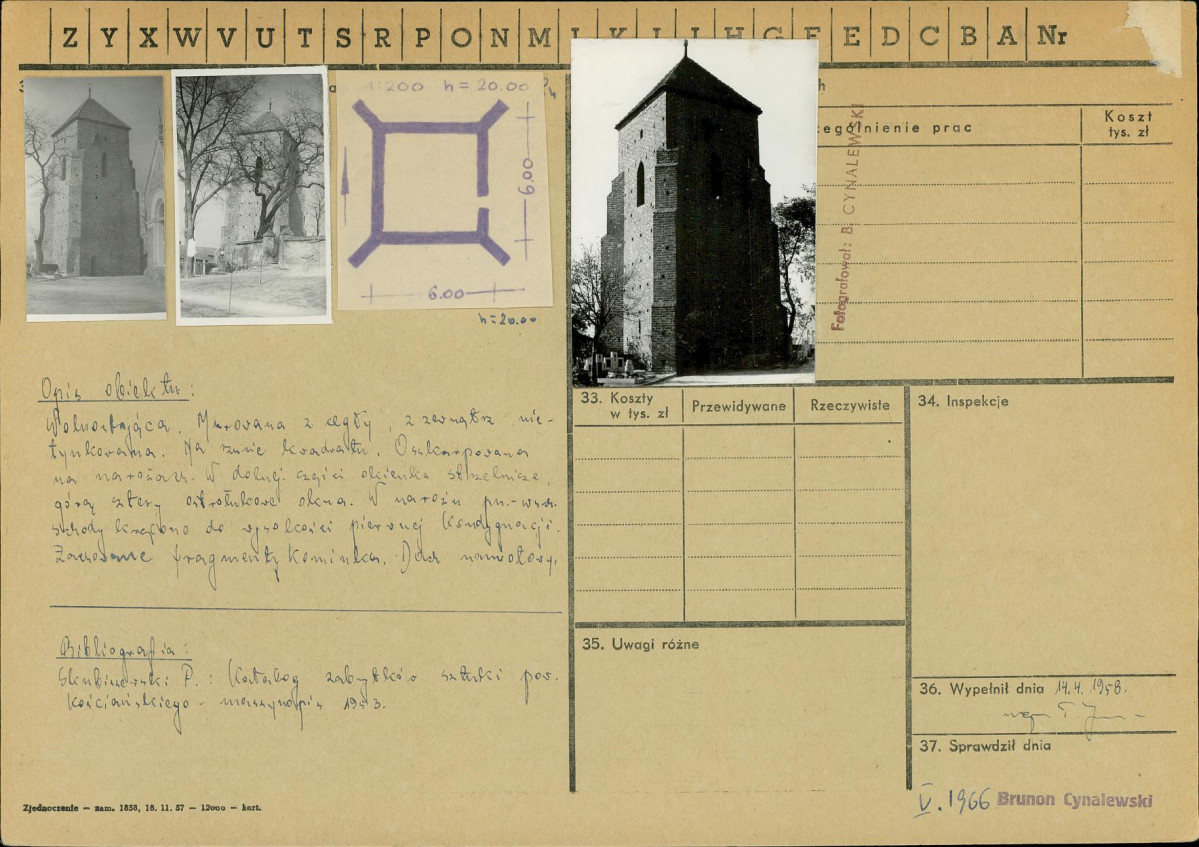 Z Y X W V U T S R P O N M Ł K L J I H G F E D C B A Nr
1:200 h = 20.00
6.00
6.00
h = 20.00
zególnienie prac
Koszt
tys. zł
Fotografował: B. CYNALEWSKI
Opis obiektu:
Wolnostojąca. Murowana z cegły, z zewnątrz nie-
tynkowana. Na rzucie kwadratu. Oszkarpowana
na narożach. W dolnej części okienka strzelnicze,
górą cztery ostrołukowe okna. W narożu pn.-wsch.
schody kręcone do wysokości pierwszej kondygnacji.
Zachowane fragmenty kominka. Dach namiotowy.
Bibliografia:
Skubiszewski P.: Katalog zabytków sztuki pow.
Kościańskiego - maszynopis 1953.
Zjednoczenie — zam. 1858, 18. 11. 57 — 12000 — kart.
33. Koszty
w tys. zł
Przewidywane
Rzeczywiste
34. Inspekcje
35. Uwagi różne
36. Wypełnił dnia 14.4.1958.
mgr T.
37. Sprawdził dnia
V. 1966 Brunon Cynalewski